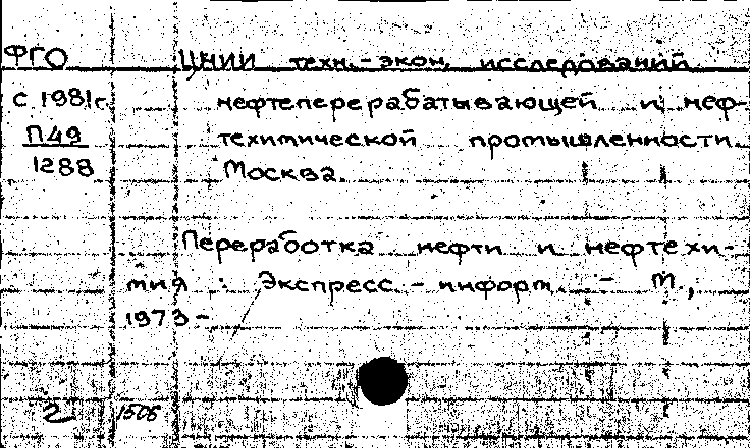 ФГО ЦНИИ техн.-экон. исследований
с 1981г. нефтеперерабатывающей и неф-
П49 техимической промышленности.
1288 Москва.
Переработка нефти и нефтехи-
мия : Экспресс-информ. - М.,
1973-
2 1506